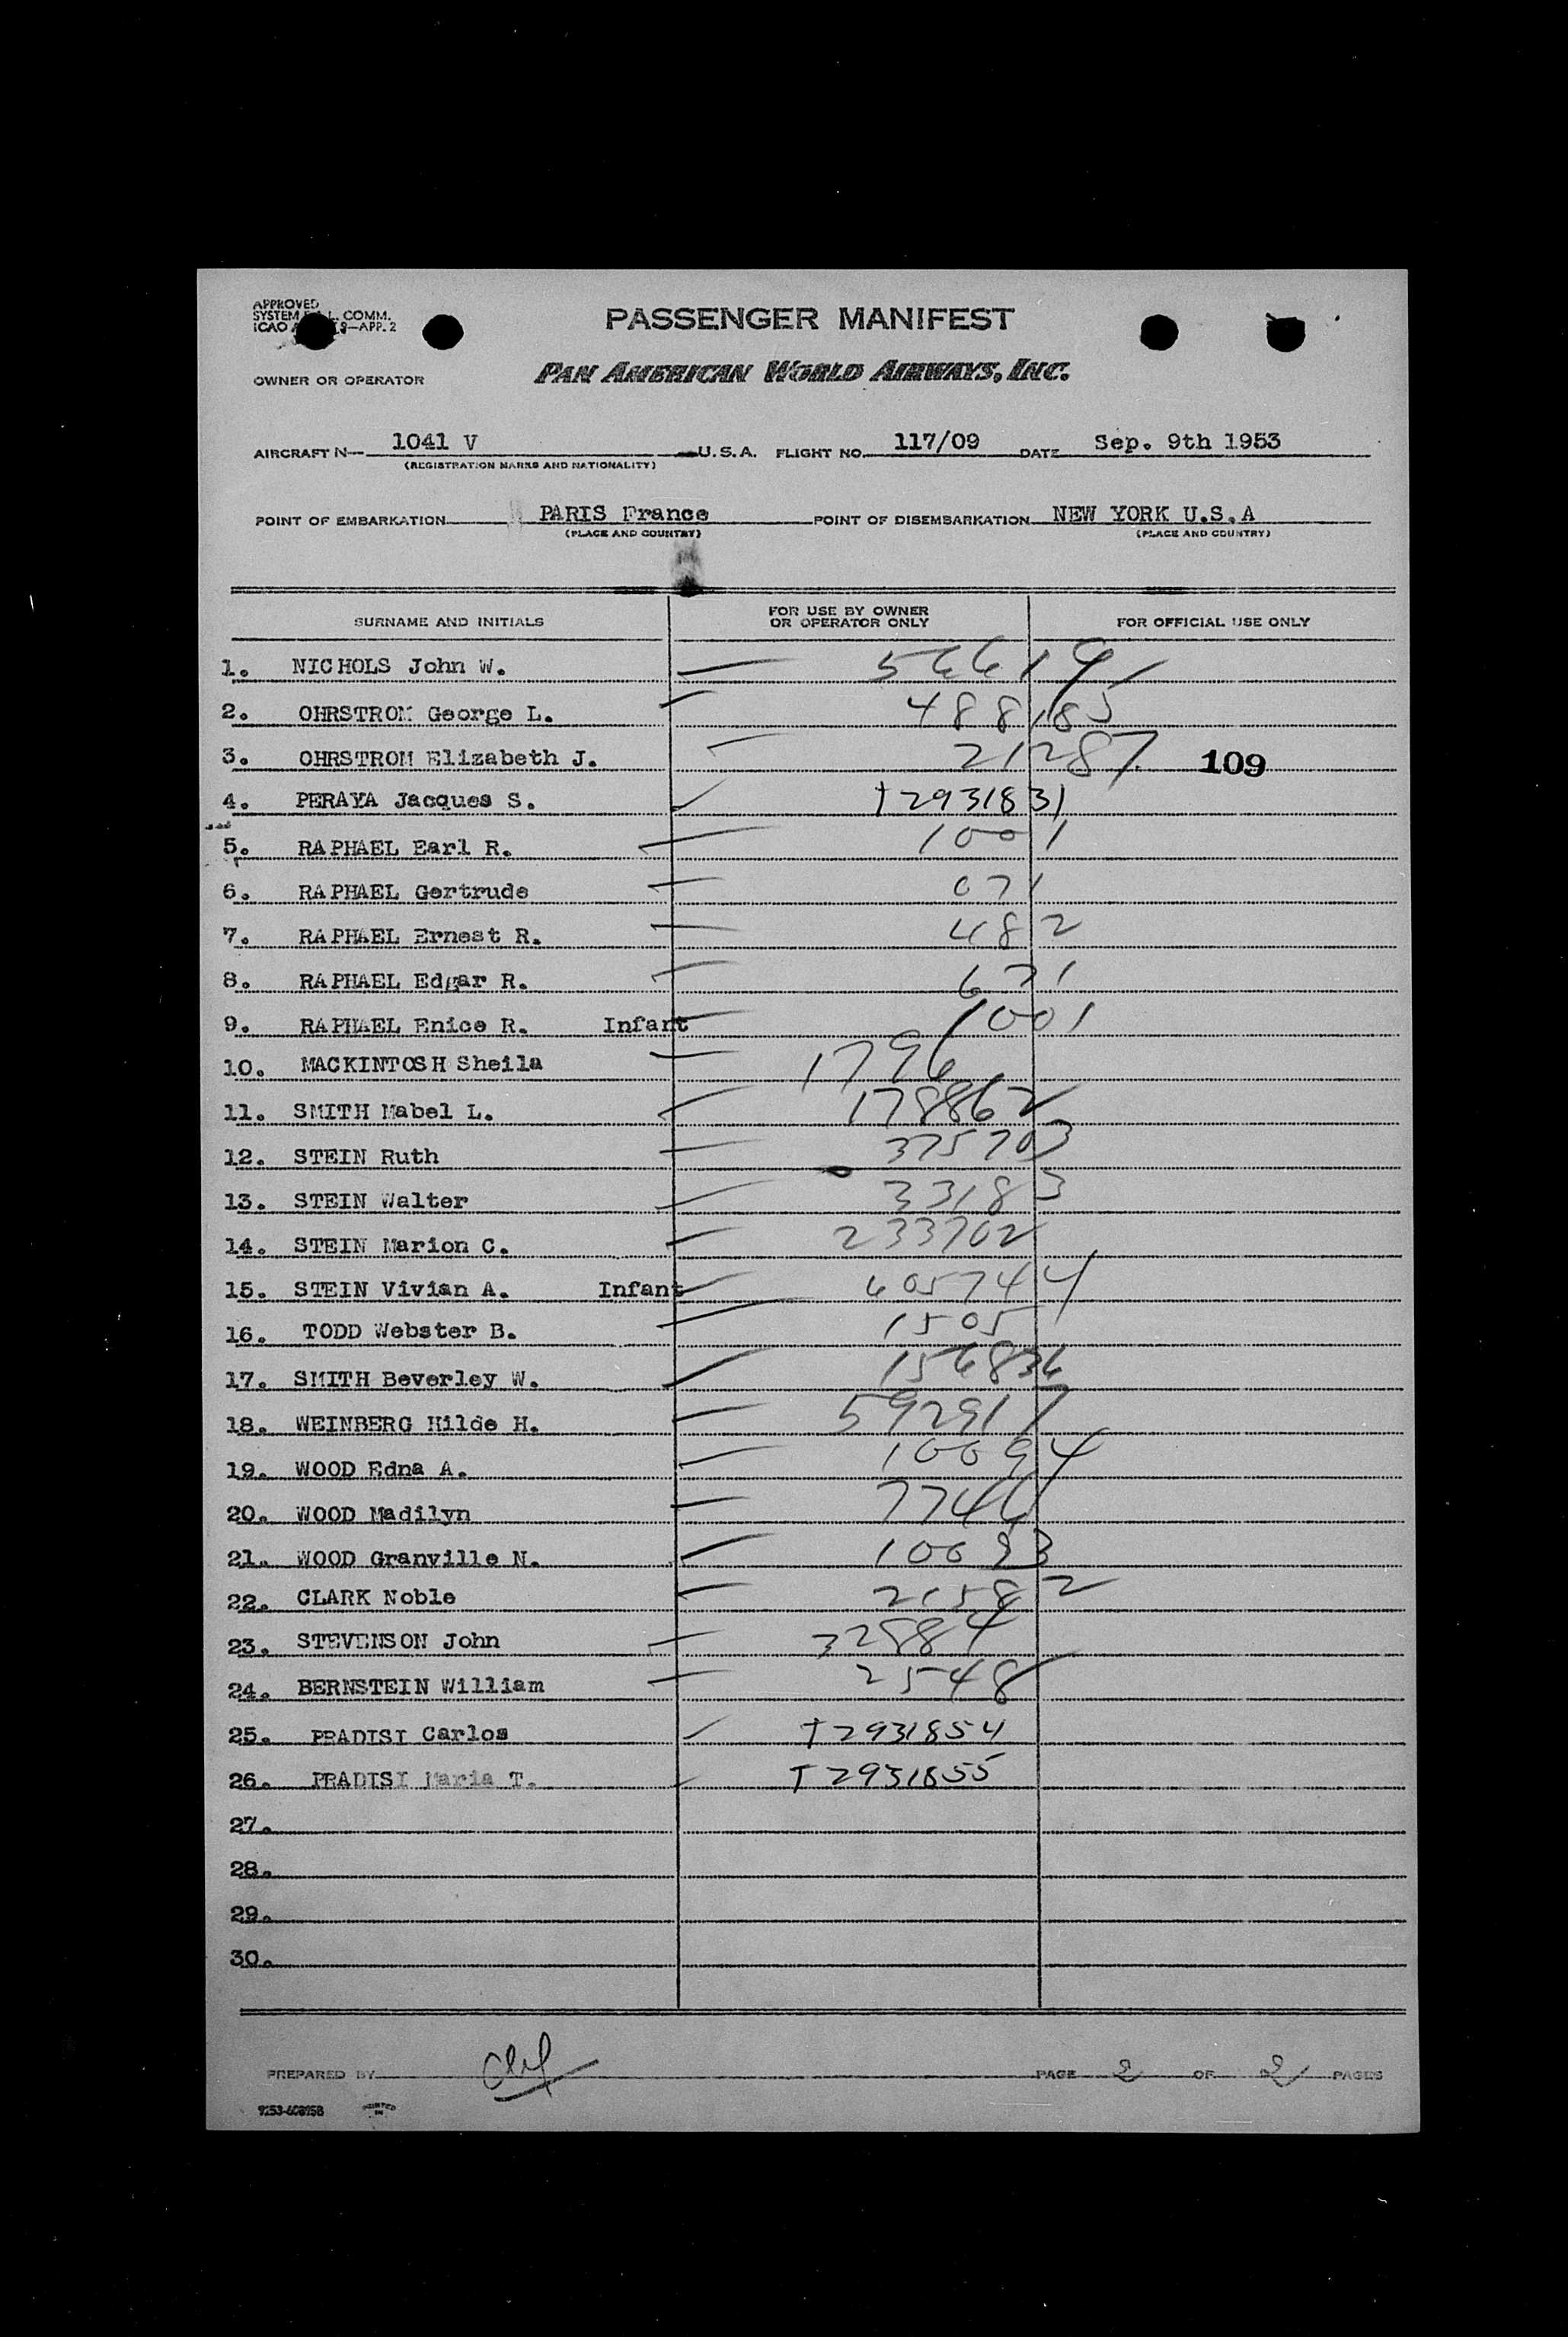 APPROVED
SYSTEM L. COMM.
ICAO 9—APP. 2
PASSENGER MANIFEST
OWNER OR OPERATOR PAN AMERICAN WORLD AIRWAYS, INC.
AIRCRAFT N— 1041 V U.S.A. FLIGHT NO. 117/09 DATE Sep. 9th 1953
(REGISTRATION MARKS AND NATIONALITY)
POINT OF EMBARKATION PARIS France POINT OF DISEMBARKATION NEW YORK U.S.A
(PLACE AND COUNTRY) (PLACE AND COUNTRY)
SURNAME AND INITIALS FOR USE BY OWNER OR OPERATOR ONLY FOR OFFICIAL USE ONLY
1. NICHOLS John W. 56619
2. OHRSTROM George L. 488185
3. OHRSTROM Elizabeth J. 21287 109
4. PERAYA Jacques S. T2931831
5. RAPHAEL Earl R. 1001
6. RAPHAEL Gertrude 071
7. RAPHAEL Ernest R. 482
8. RAPHAEL Edgar R. 671
9. RAPHAEL Enice R. Infant 1001
10. MACKINTOSH Sheila 1796
11. SMITH Mabel L. 178862
12. STEIN Ruth 375703
13. STEIN Walter 33183
14. STEIN Marion C. 233702
15. STEIN Vivian A. Infant 605744
16. TODD Webster B. 1505
17. SMITH Beverley W. 156836
18. WEINBERG Hilde H. 592917
19. WOOD Edna A. 10094
20. WOOD Madilyn 7746
21. WOOD Granville N. 10093
22. CLARK Noble 21582
23. STEVENSON John 32884
24. BERNSTEIN William 2548
25. PRADISI Carlos T2931854
26. PRADISI Maria T. T2931855
27.
28.
29.
30.
PREPARED BY PAGE 2 OF 2 PAGES
9253-608958 PRINTED IN